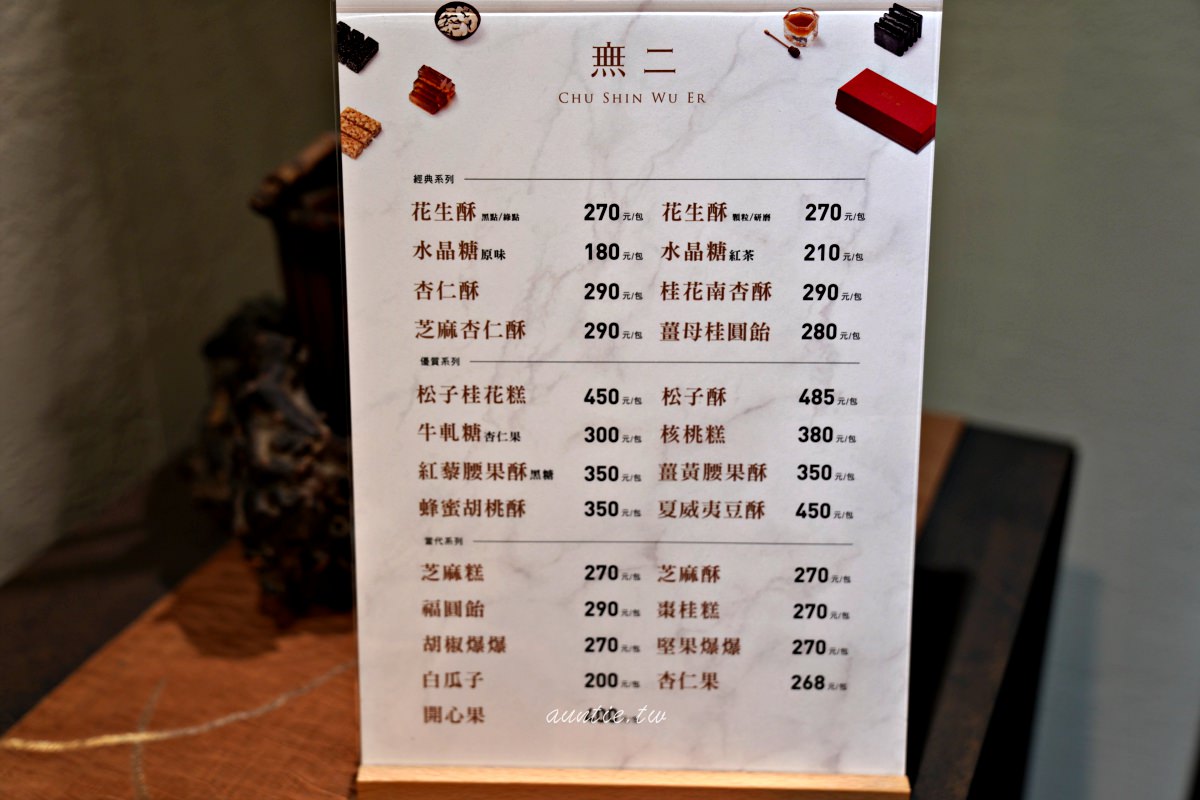 無二
CHU SHIN WU ER
經典系列
花生酥 黑點/綠點 270元/包 花生酥 顆粒/研磨 270元/包
水晶糖原味 180元/包 水晶糖紅茶 210元/包
杏仁酥 290元/包 桂花南杏酥 290元/包
芝麻杏仁酥 290元/包 薑母桂圓飴 280元/包
優質系列
松子桂花糕 450元/包 松子酥 485元/包
牛軋糖杏仁果 300元/包 核桃糕 380元/包
紅藜腰果酥黑糖 350元/包 薑黃腰果酥 350元/包
蜂蜜胡桃酥 350元/包 夏威夷豆酥 450元/包
當代系列
芝麻糕 270元/包 芝麻酥 270元/包
福圓飴 290元/包 棗桂糕 270元/包
胡椒爆爆 270元/包 堅果爆爆 270元/包
白瓜子 200元/包 杏仁果 268元/包
開心果
auntie.tw